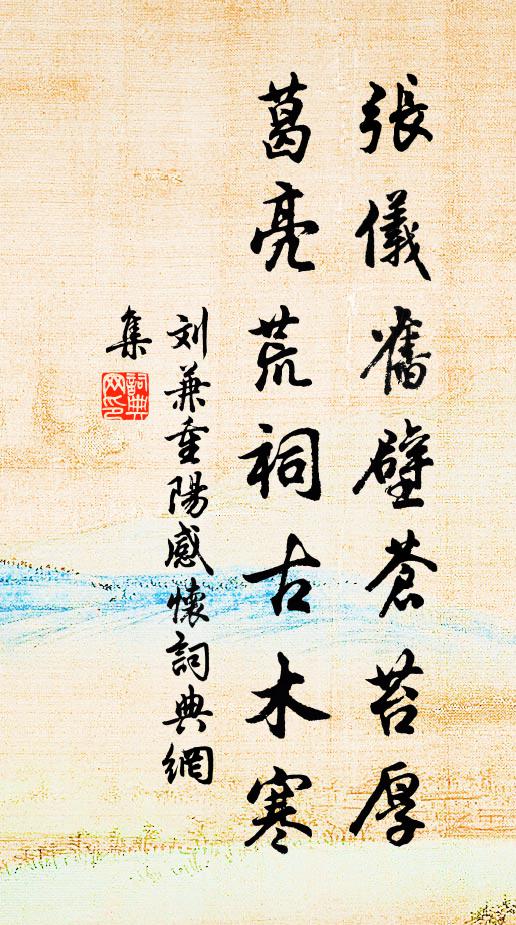 張儀舊壁蒼苔厚
葛亮荒祠古木寒
刘兼重陽感懷詞典網
集
詞典网印